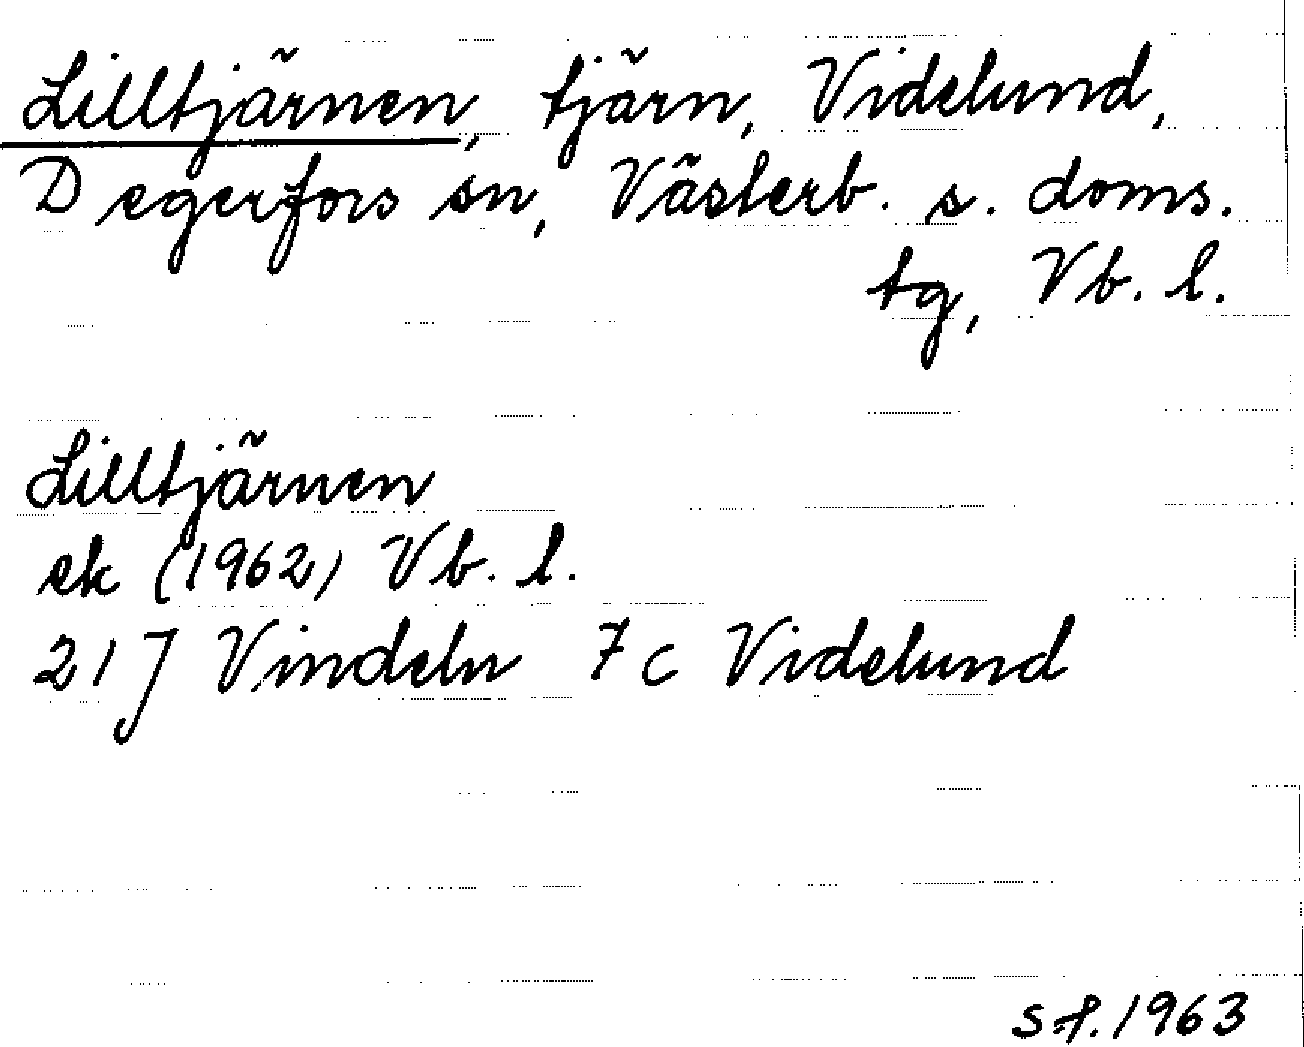 Lilltjärnen, tjärn, Videlund,
Degerfors sn, Västerb. s. doms.
tg, Vb. l.
Lilltjärnen
ek (1962) Vb. l.
21 J Vindeln 7c Videlund
s.f. 1963